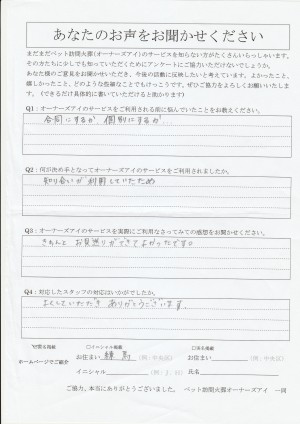 あなたのお声をお聞かせください
まだまだペット訪問火葬（オーナーズアイ）のサービスを知らない方がたくさんいらっしゃいます。
その方たちに少しでも知っていただくためにアンケートにご協力いただけないでしょうか。
あなた様のご意見をお聞かせいただき、今後の活動に反映したいと考えています。よかったこと、
嬉しかったこと、どのような些細なことでもけっこうです。ぜひご協力をよろしくお願いいたしま
す。（できるだけ具体的に書いていただけると助かります）
Q1：オーナーズアイのサービスをご利用される前に悩んでいたことをお教えください。
合同にするか 個別にするか
Q2：何が決め手となってオーナーズアイのサービスをご利用されましたか。
知り合いが利用していたため
Q3：オーナーズアイのサービスを実際にご利用なさってみての感想をお聞かせください。
きちんと お見送りができてよかったです。
Q4：対応したスタッフの対応はいかがでしたか。
よくしていただき ありがとうございます。
イニシャル掲載
ホームページでご紹介
お住まい 練馬 （例：中央区）
お住まい （例：中央区）
イニシャル
氏名
ご協力、本当にありがとうございました。 ペット訪問火葬オーナーズアイ 一同